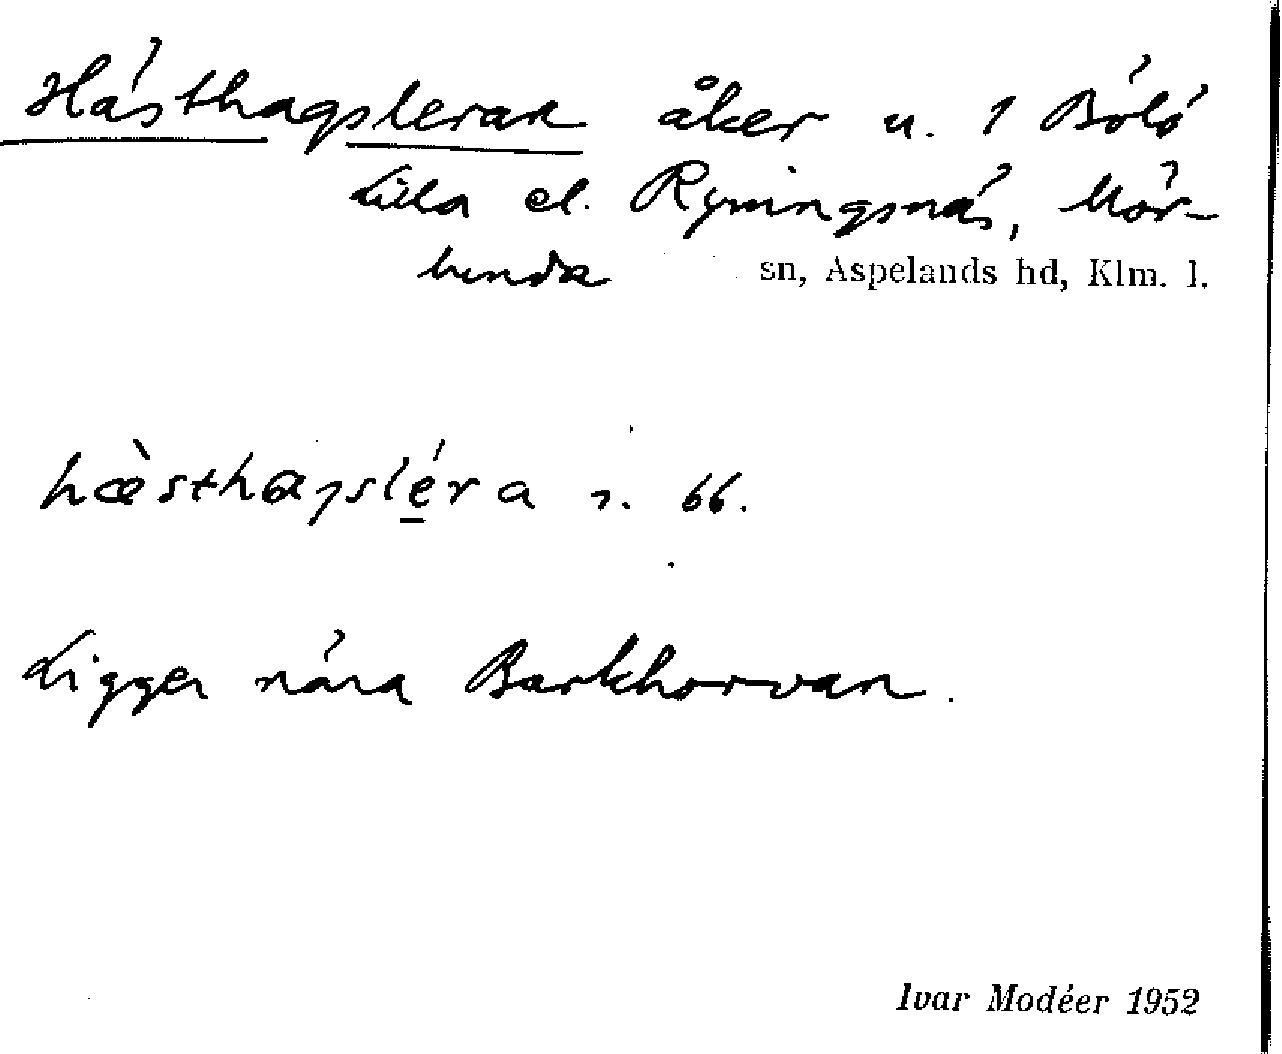 Hästhagsleran åker u. 1 Bölö
Lilla el. Ryningsnäs, Mör-
lunda sn, Aspelands hd, Klm. l.
hæ̀sthaγslé̠ra s. 66.
Ligger nära Barkhorvan.
Ivar Modéer 1952